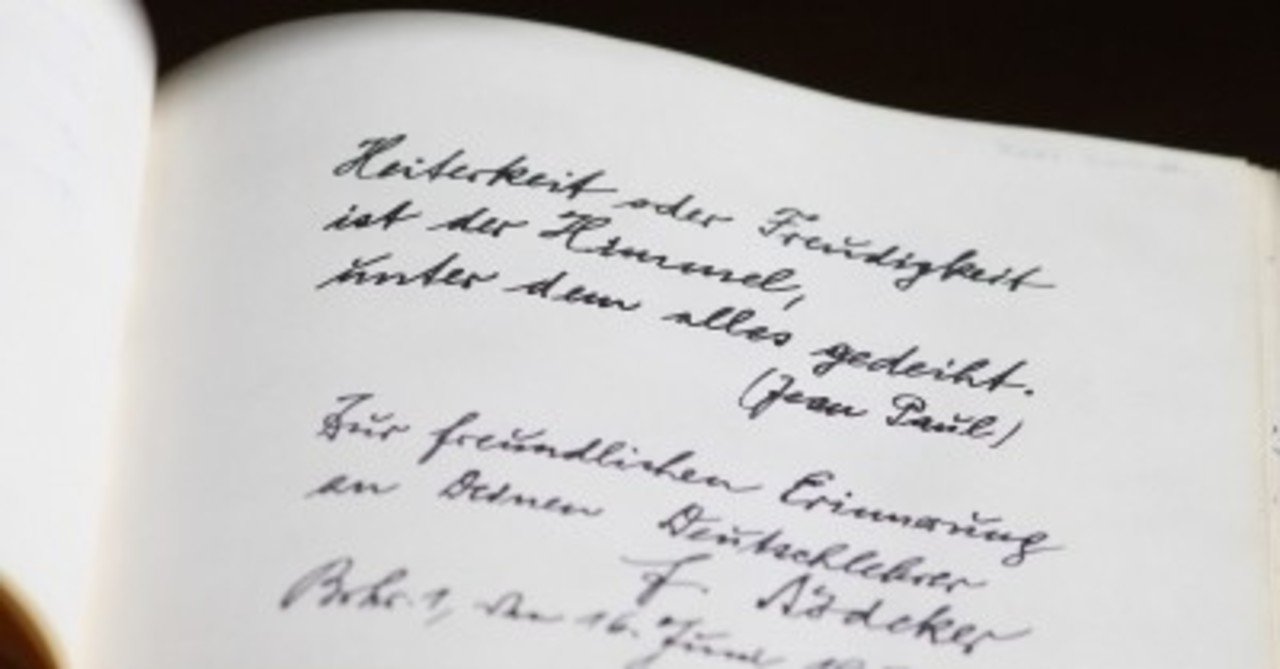 Heiterkeit oder Freudigkeit
ist der Himmel,
unter dem alles gedeiht.
(Jean Paul)
Zur freundlichen Erinnerung
an Deinen Deutschlehrer
F.
den 16. Juni